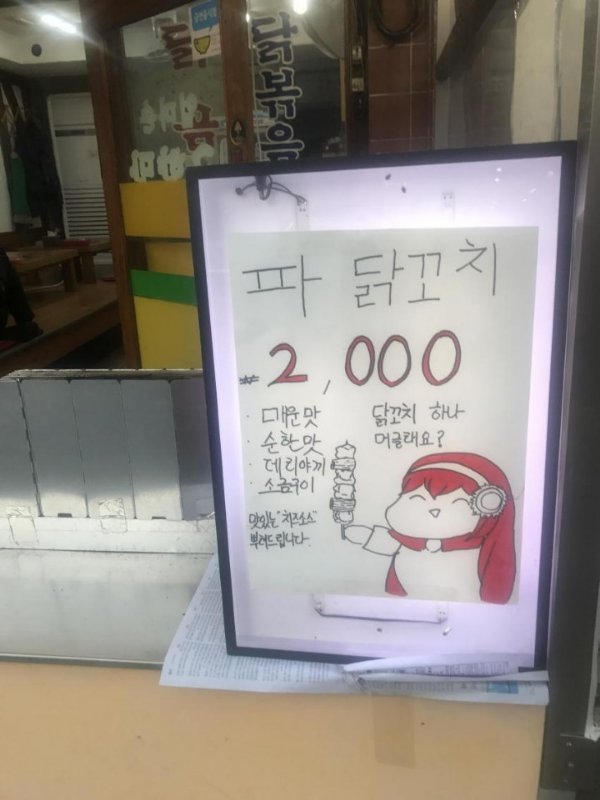 닭볶음
파 닭꼬치
₩2,000
· 매운맛
· 순한맛
· 데리야끼
· 소금구이
맛있는 "치즈소스"
뿌려드립니다.
닭꼬치 하나
머글래요?